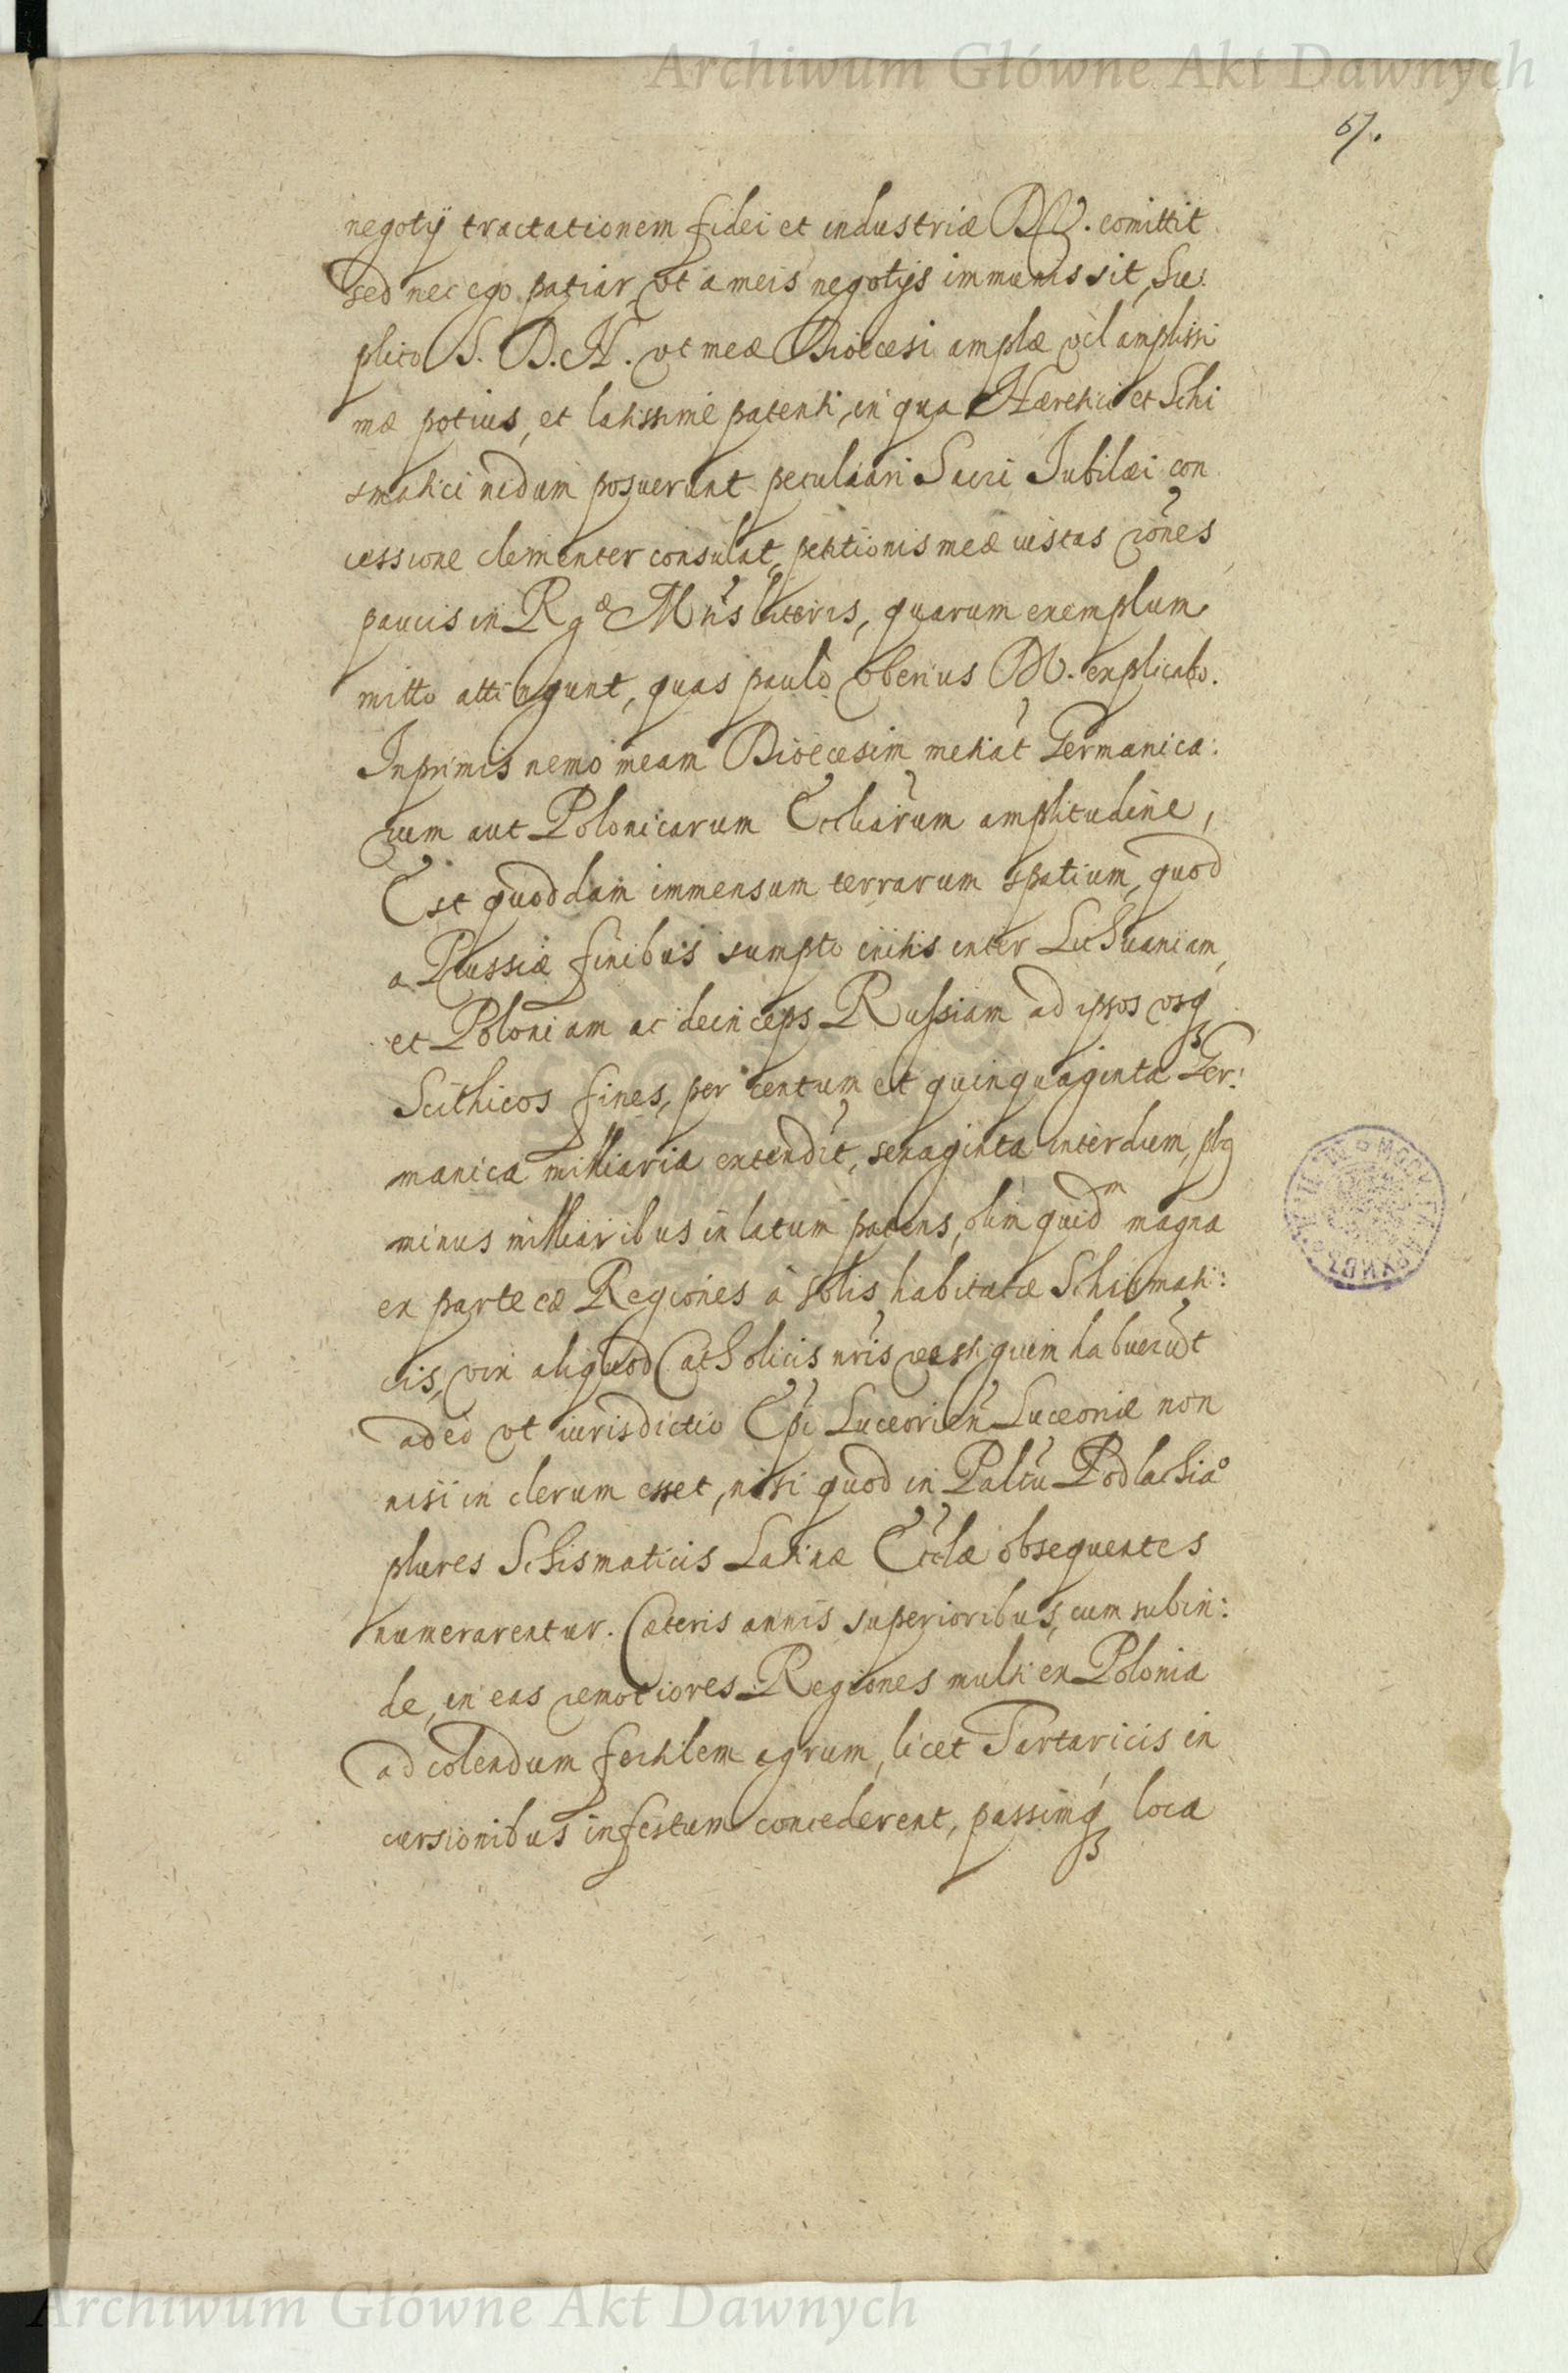 Archiwum Główne Akt Dawnych
67.
negotÿ tractationem fidei et industriæ DV. comittit
sed nec ego patiar, vt a meis negotÿs immunis sit, Su:
plico S. D. N. vt meæ Dioecesi amplæ vel amplissi
mæ potius, et latissime patenti, in qua Hæretici et Schi
smatici nidum posuerunt peculiari Sacri Iubilæi con
cessione clementer consulat, petitionis meæ iustas rônes
paucis in Rgæ Mtis literis, quarum exemplum
mitto attingunt, quas paulo vberius DV. explicabo.
Inprimis nemo meam Dioecesim metiat Germanica:
rum aut Polonicarum Eccliarum amplitudine,
Est quoddam immensum terrarum spatium, quod
a Prussiæ finibus sumpto initis inter Lithuaniam,
et Poloniam ac deinceps Russiam ad ipsos vsq
Scithicos fines, per centum et quinquaginta Ger:
manica milliaria extendit, sexaginta interdum, plq
minus milliaribus in latum patens, olim quidm magna
ex parte eæ Regiones à solis habitatæ Schismati:
cis, vix aliquod Catholicis nris vestiguim habuerut
adeo vt iurisdictio Epi Luceorien Luceoriæ non
nisi in clerum esset, nisi quod in Paltu Podlachiæ
plures Schismaticis Latinæ Ecclæ obsequentes
numerarentur. Cæteris annis superioribus, cum subin:
de, in eas remotiores Regiones multi ex Polonia
ad colendum fertilem agrum, licet Tartaricis in
cursionibus infestum concederent, passimq loca
Archiwum Główne Akt Dawnych